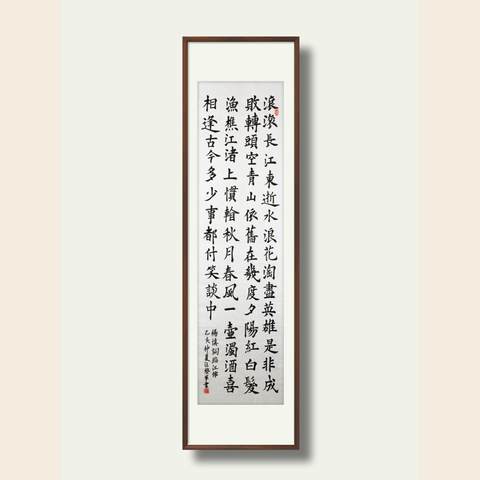 滾滾長江東逝水浪花淘盡英雄是非成
敗轉頭空青山依舊在幾度夕陽紅白髮
漁樵江渚上慣看秋月春風一壺濁酒喜
相逢古今多少事都付笑談中
楊慎詞臨江仙
乙仲夏書